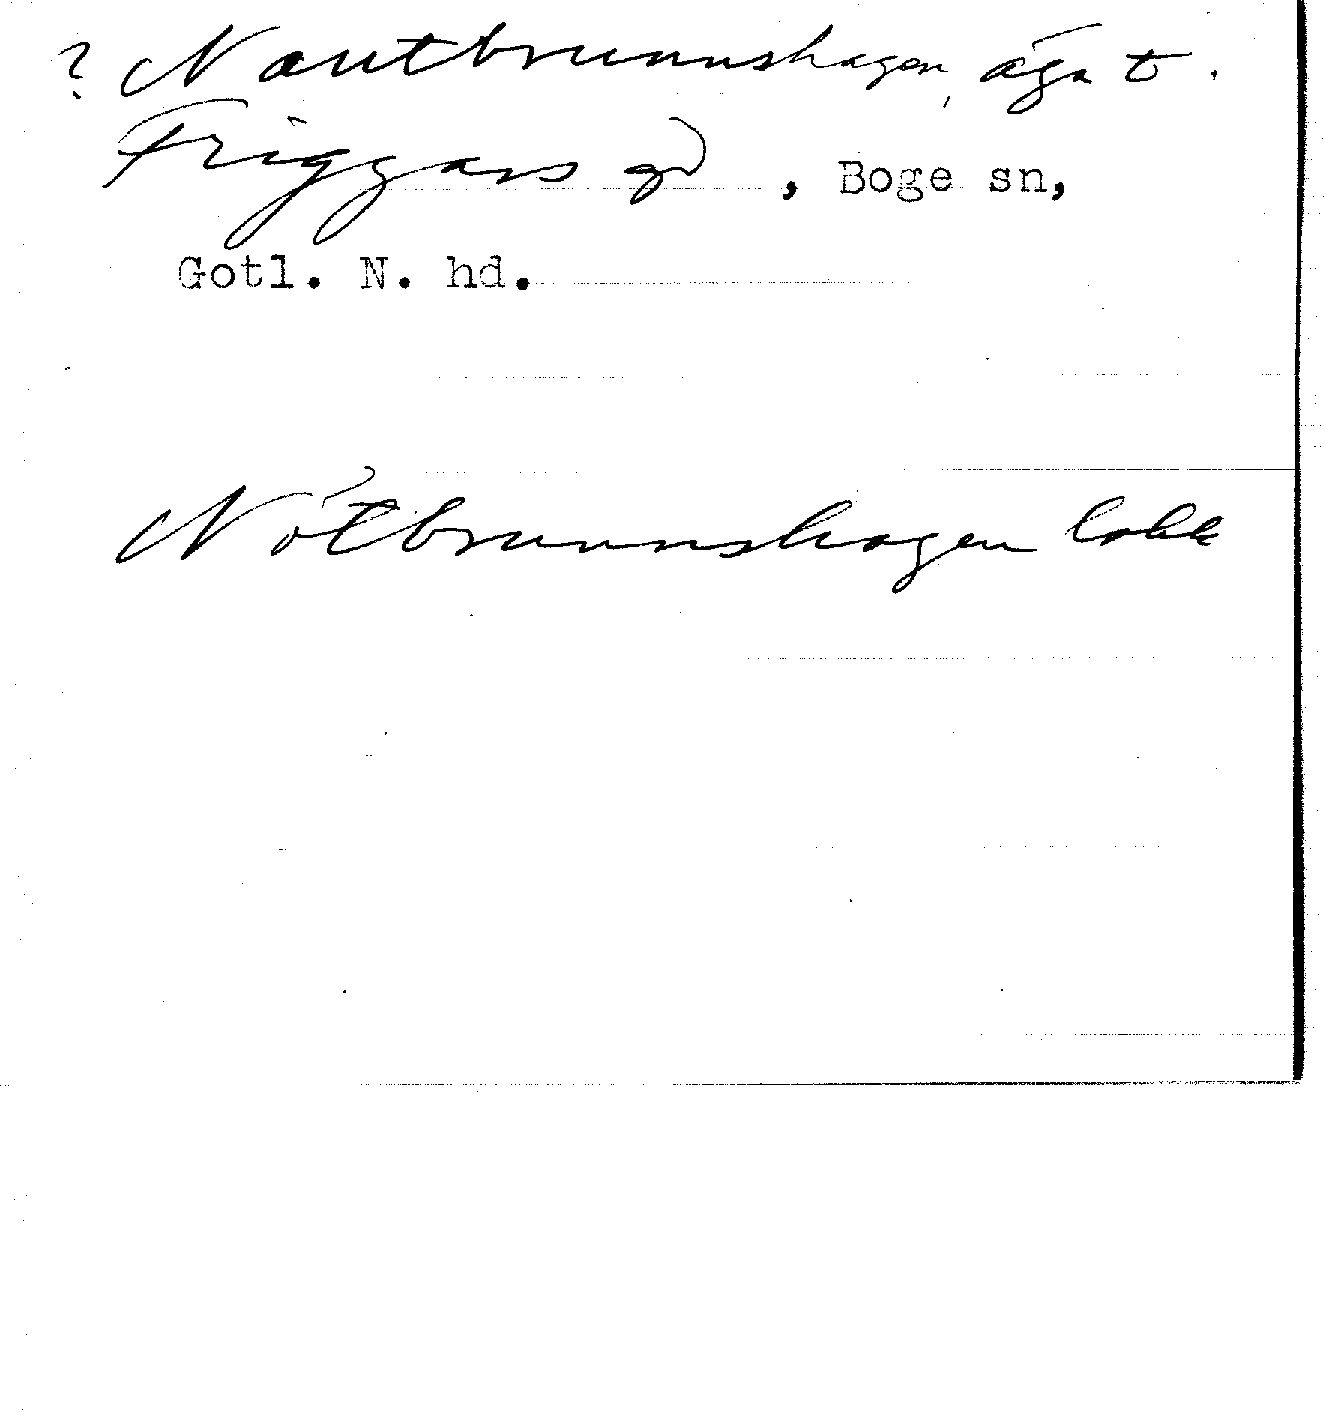 ? Nautbrunnshagen, äga t.
Friggars gd, Boge sn,
Gotl. N. hd.
Nötbrunnshagen